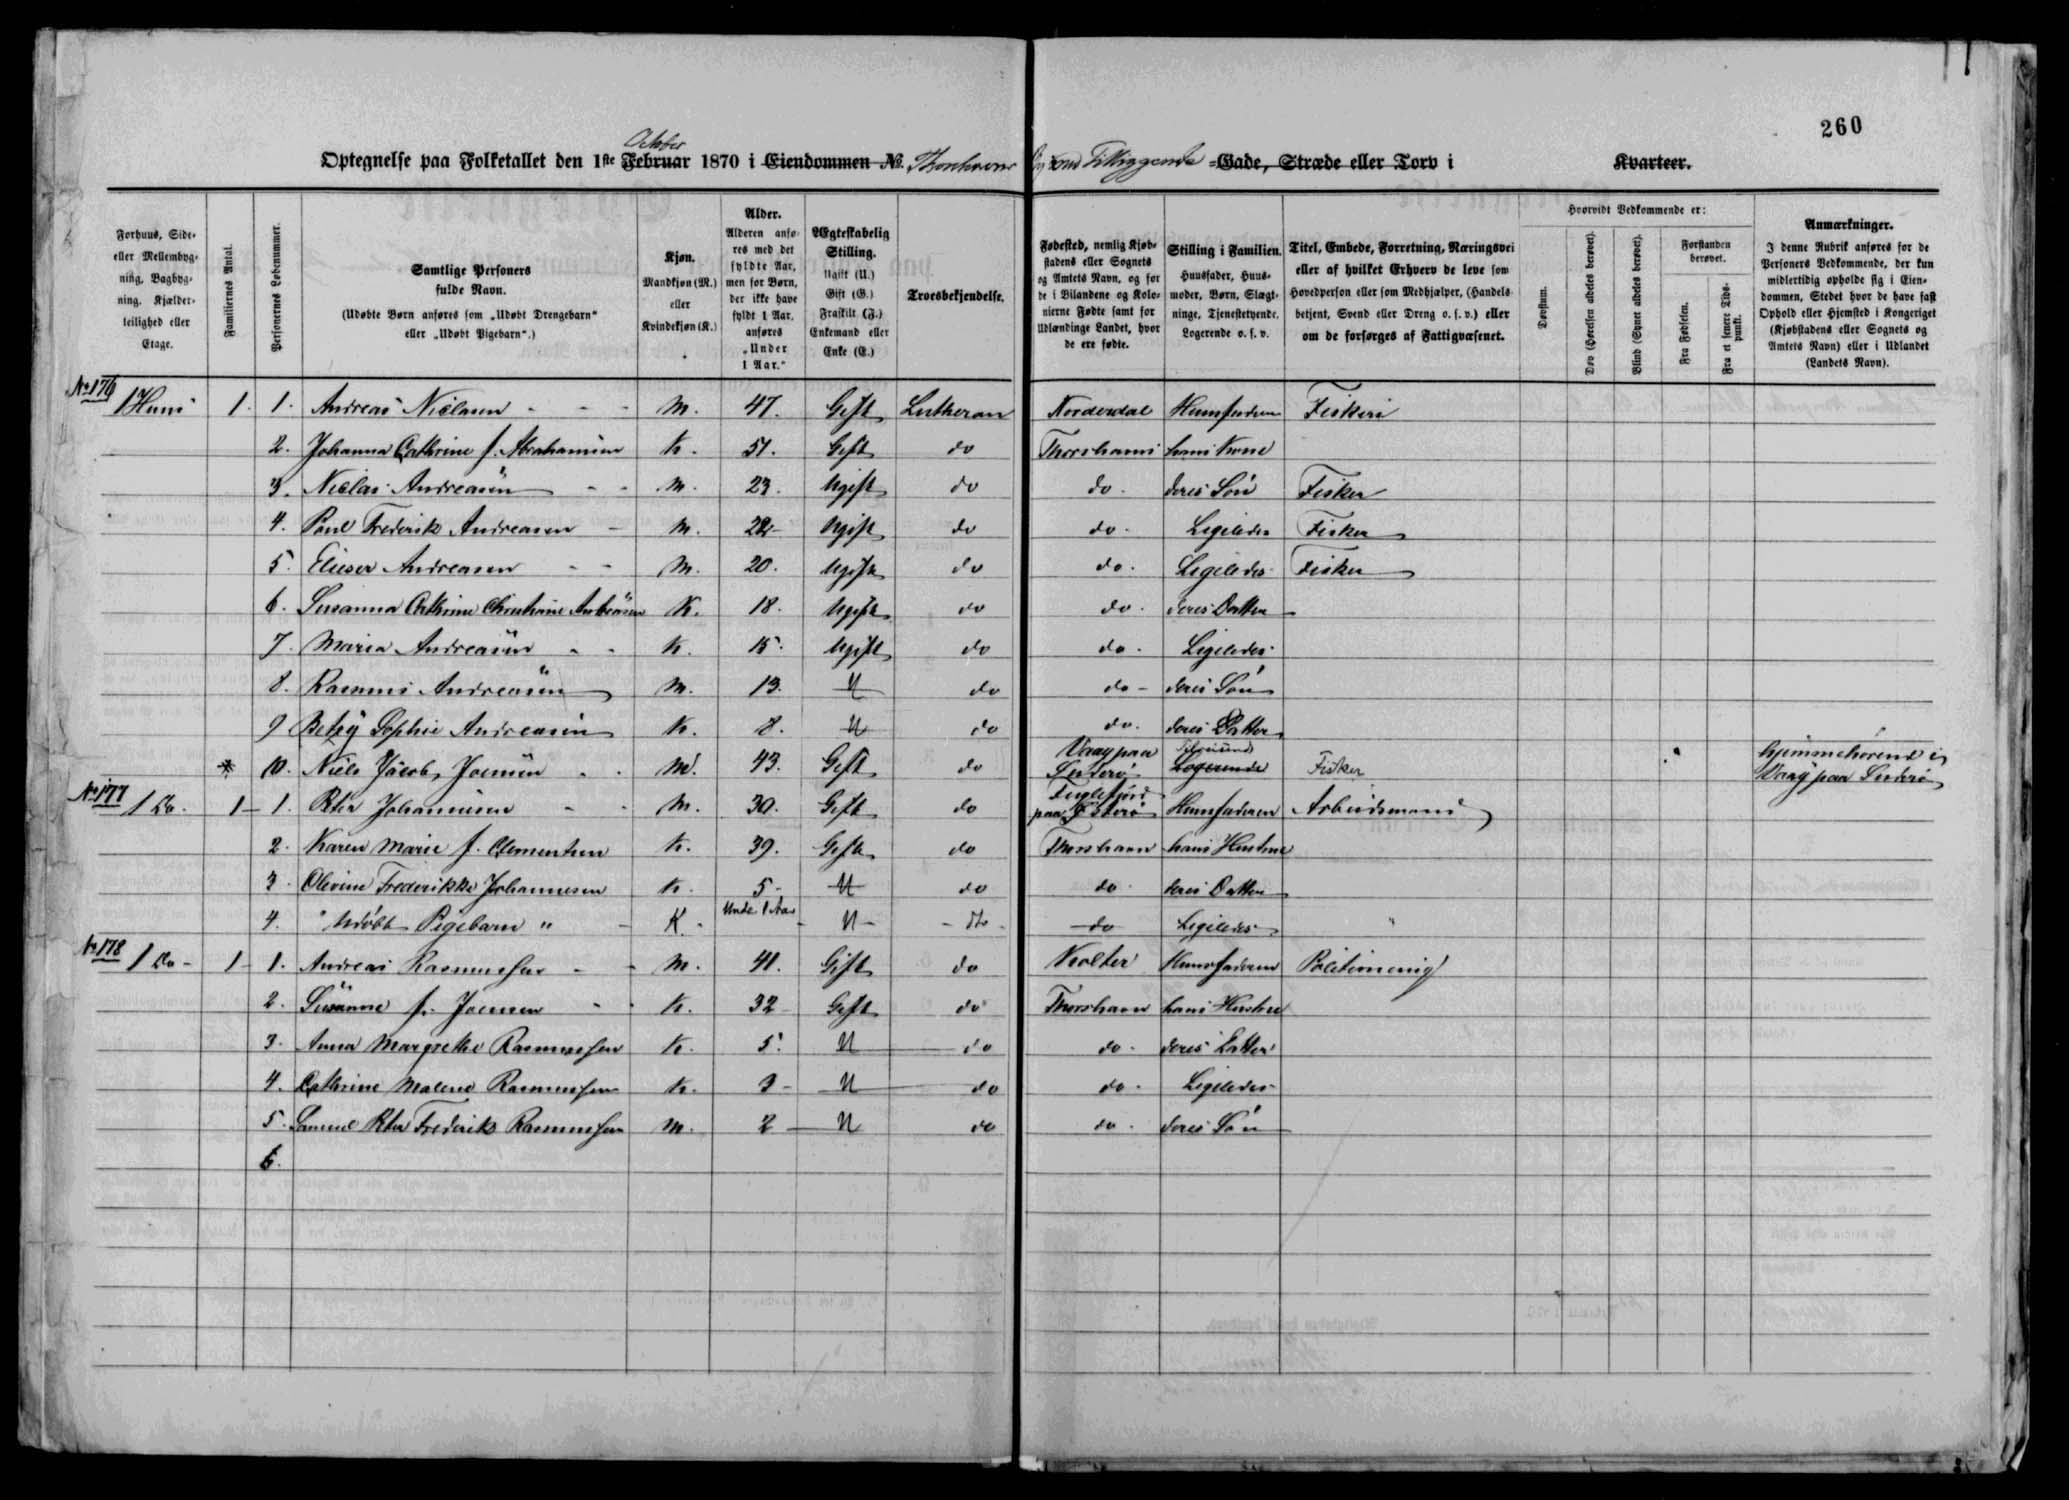 260
October
Optegnelse paa Folketallet den 1ste Februar 1870 i Eiendommen No. Thorshavns By med Tilliggende Gade, Stræde eller Torv i Kvarteer.
Forhuus, Side- eller Mellembyg- ning, Bagbyg- ning, Kjælder- leilighed eller Etage.
Familiernes Antal.
Personernes Løbenummer.
Samtlige Personers fulde Navn.
(Udøbte Børn anføres som „Udøbt Drengebarn“ eller „Udøbt Pigebarn“.)
Kjøn.
Mandkjøn (M.) eller Kvindekjøn (K.)
Alder.
Alderen anfø- res med det fyldte Aar, men for Børn, der ikke have fyldt 1 Aar, anføres „Under 1 Aar.“
Ægteskabelig Stilling.
Ugift (U.) Gift (G.) Fraskilt (F.) Enkemand eller Enke (E.)
Troesbekjendelse.
Fødested, nemlig Kjøb- stadens eller Sognets og Amtets Navn, og for de i Bilandene og Kolo- nierne Fødte samt for Udlændinge Landet, hvor de ere fødte.
Stilling i Familien.
Huusfader, Huus- moder, Børn, Slægt- ninge, Tjenestetyende, Logerende o. s. v.
Titel, Embede, Forretning, Næringsvei eller af hvilket Erhverv de leve som Hovedperson eller som Medhjælper, (Handels- betjent, Svend eller Dreng o. s. v.) eller om de forsørges af Fattigvæsenet.
Hvorvidt Vedkommende er:
Døvstum.
Døv (Hørelsen aldeles berøvet).
Blind (Synet aldeles berøvet).
Forstanden berøvet.
Fra Fødselen.
Fra et senere Tids- punkt.
Anmærkninger.
I denne Rubrik anføres for de Personers Vedkommende, der kun midlertidig opholde sig i Eien- dommen, Stedet hvor de have fast Ophold eller Hjemsted i Kongeriget (Kjøbstadens eller Sognets og Amtets Navn) eller i Udlandet (Landets Navn).
No 176
1 Huus 1. 1. Andreas Niclasen M. 47. Gift Lutheran Norderdal Huusfaderen Fiskeri
2. Johanna Cathrine f. Abrahamsen K. 51. Gift do Thorshavn hans Kone
3. Niclas Andreasen M. 23. Ugift do do deres Søn Fisker
4. Poul Frederik Andreasen M. 22 Ugift do do Ligeledes Fisker
5. Elieser Andreasen M. 20. Ugift do do Ligeledes Fisker
6. Susanna Cathrine Christiane Andreasen K. 18. Ugift do do deres Datter
7. Maria Andreasen K. 15. Ugift do do Ligeledes
8. Rasmus Andreasen M. 13. U do do deres Søn
9 Betsy Sophie Andreasen K. 8. U do do deres Datter
* 10. Niels Jacob Joensen M. 43. Gift do Vaag paa Suderø Logerende Fisker Hjemmehørende i Vaag paa Suderø
No 177
1 Do. 1 1. Peter Johannesen M. 30. Gift do Fuglefjord paa Østerø Huusfaderen Arbeidsmand
2. Karen Marie f. Clementsen K. 39. Gift do Thorshavn hans Hustrue
3. Olivine Frederikke Johannesen K. 5 U do do deres Datter
4. " Udøbt Pigebarn " K. Under 1 Aar U do do Ligeledes "
No 178
1 Do 1 1. Andreas Rasmussen M. 41. Gift do Kolter Huusfaderen Politimenig
2. Susanne f. Joensen K. 32 Gift do Thorshavn hans Hustrue
3. Anna Margrethe Rasmussen K. 5. U do do deres Datter
4. Cathrine Malene Rasmussen K. 3 U do do Ligeledes
5. Samuel Peter Frederik Rasmussen M. 2 U do do deres Søn
6.